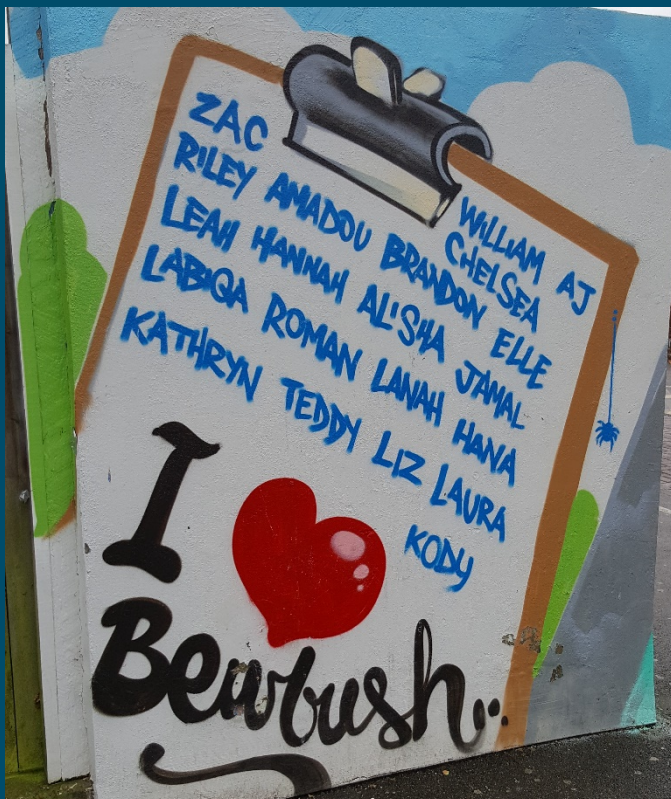 ZAC WILLIAM AJ
CHELSEA
RILEY AMADOU BRANDON ELLE
LEAH HANNAH ALISHA JAMAL
LABIQA ROMAN LANAH HANA
KATHRYN TEDDY LIZ LAURA
KODY
I ❤
Bewbush..